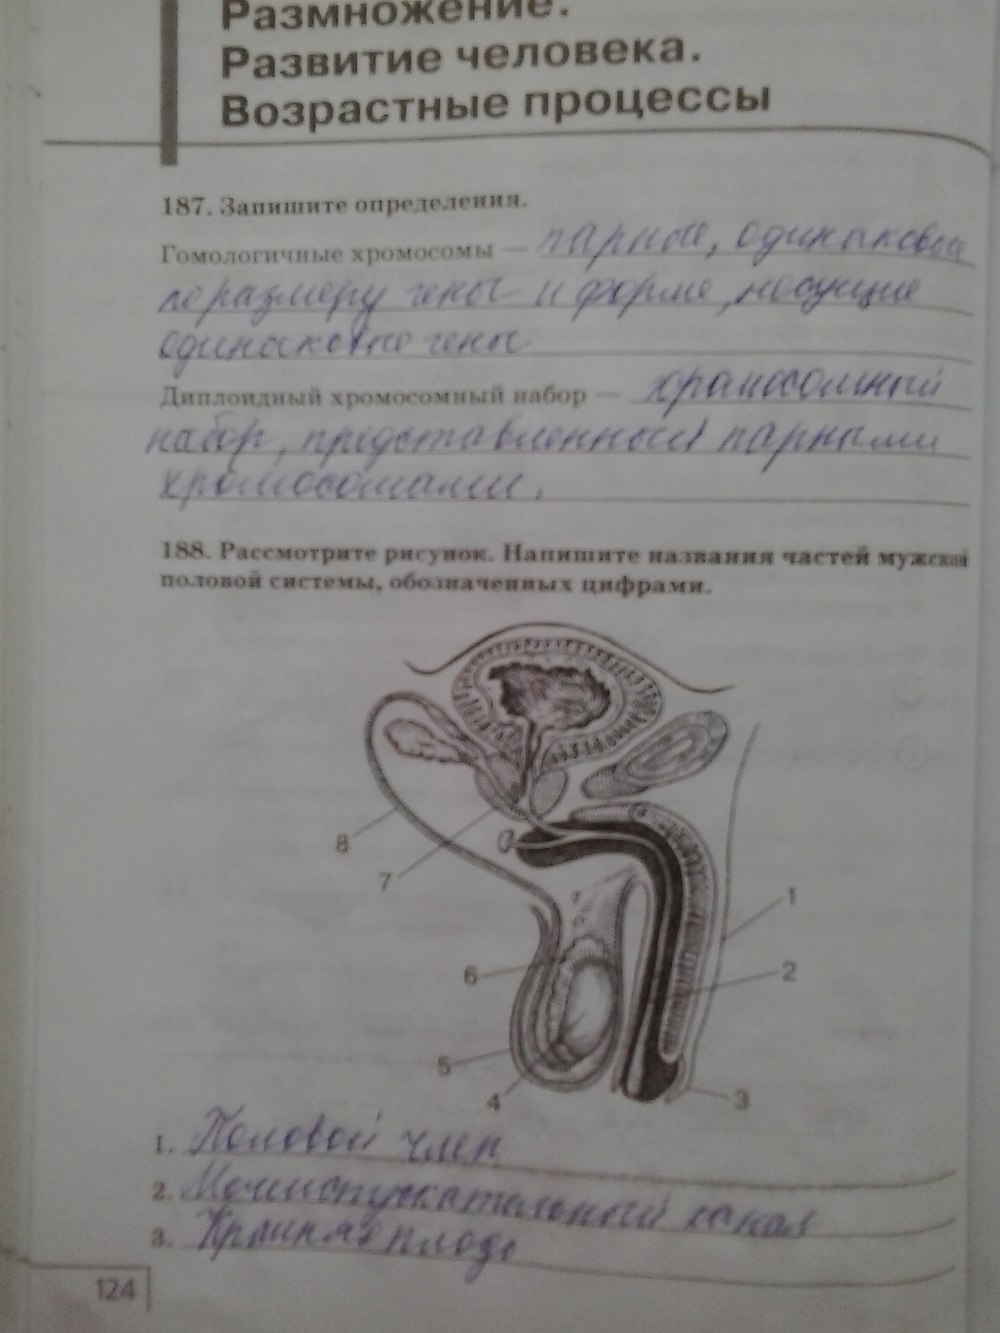 Размножение.
Развитие человека.
Возрастные процессы
187. Запишите определения.
Гомологичные хромосомы — парные, одинаковые
по размеру гены и форме, несущие
одинаковые гены
Диплоидный хромосомный набор — хромосомный
набор, представленный парными
хромосомами.
188. Рассмотрите рисунок. Напишите названия частей мужской
половой системы, обозначенных цифрами.
8
7
1
6
2
5
4
3
1. Половой член
2. Мочеиспускательный канал
3. Крайняя плоть
124